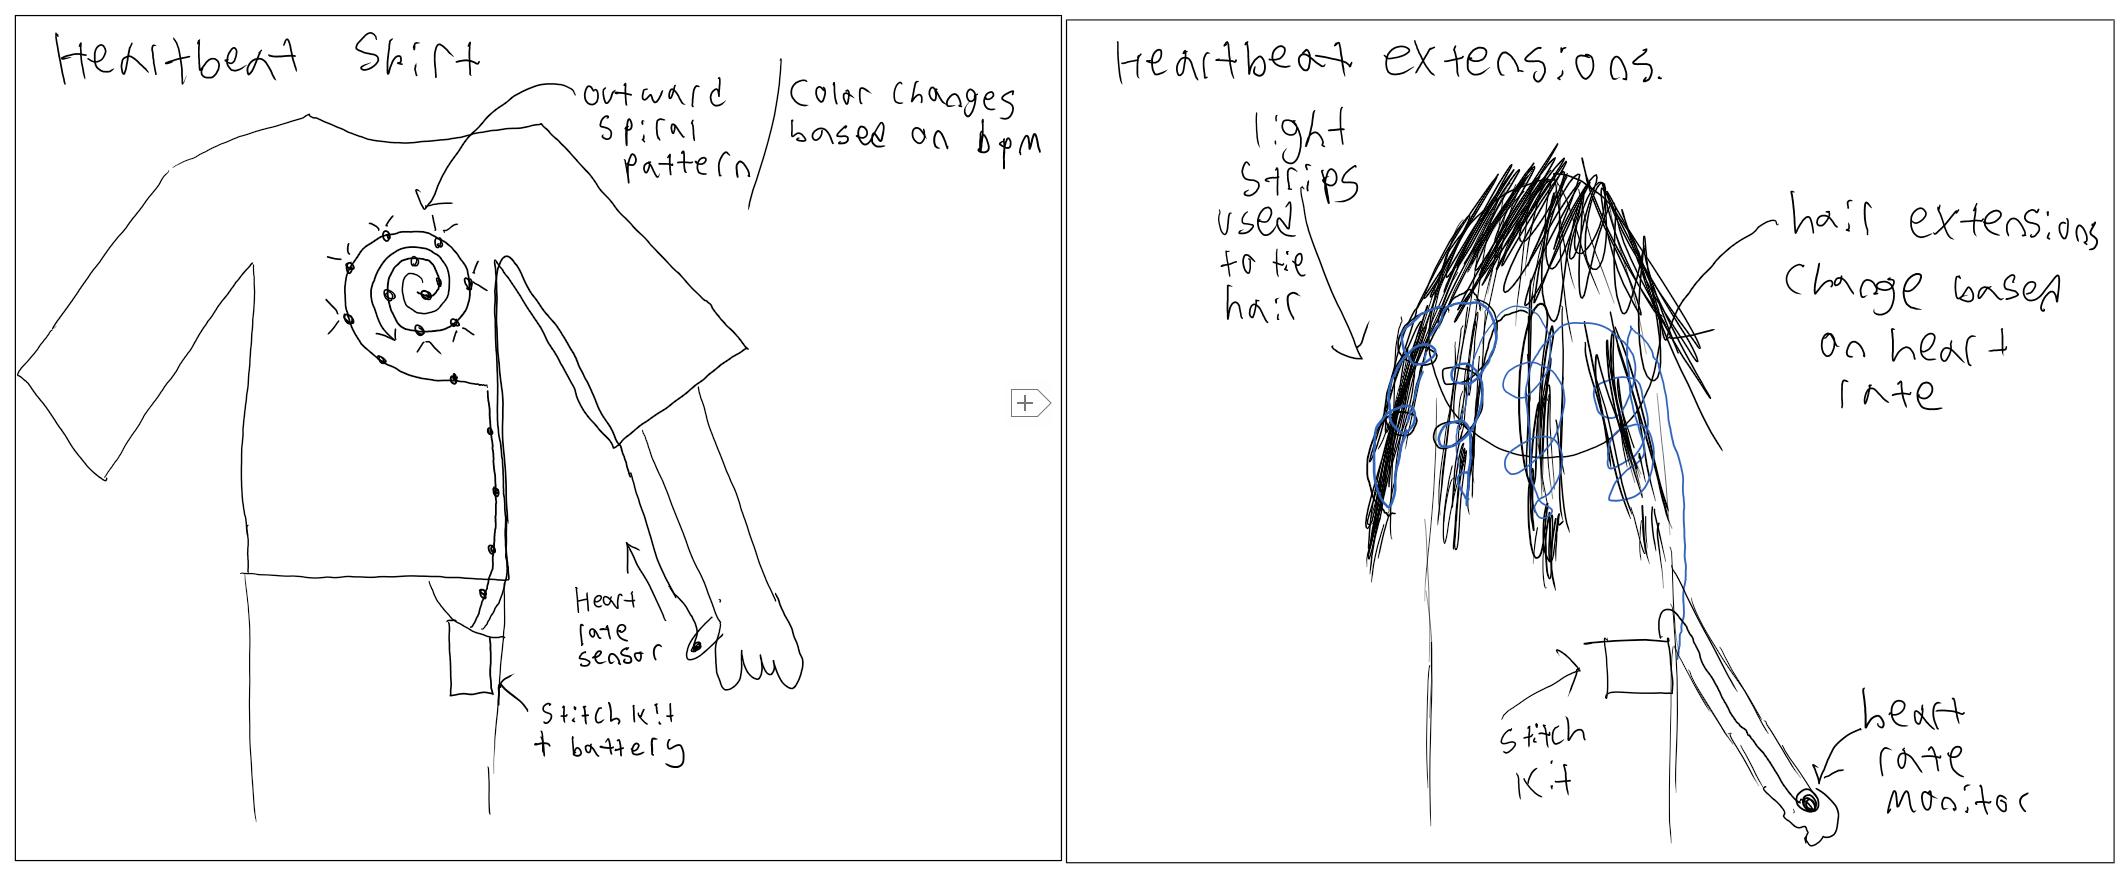 Heartbeat Shirt
outward
spiral
pattern
Color changes
based on bpm
Heart
rate
sensor
Stitch kit
+ battery
Heartbeat extensions.
light
strips
used
to tie
hair
hair extensions
change based
on heart
rate
stitch
kit
heart
rate
monitor